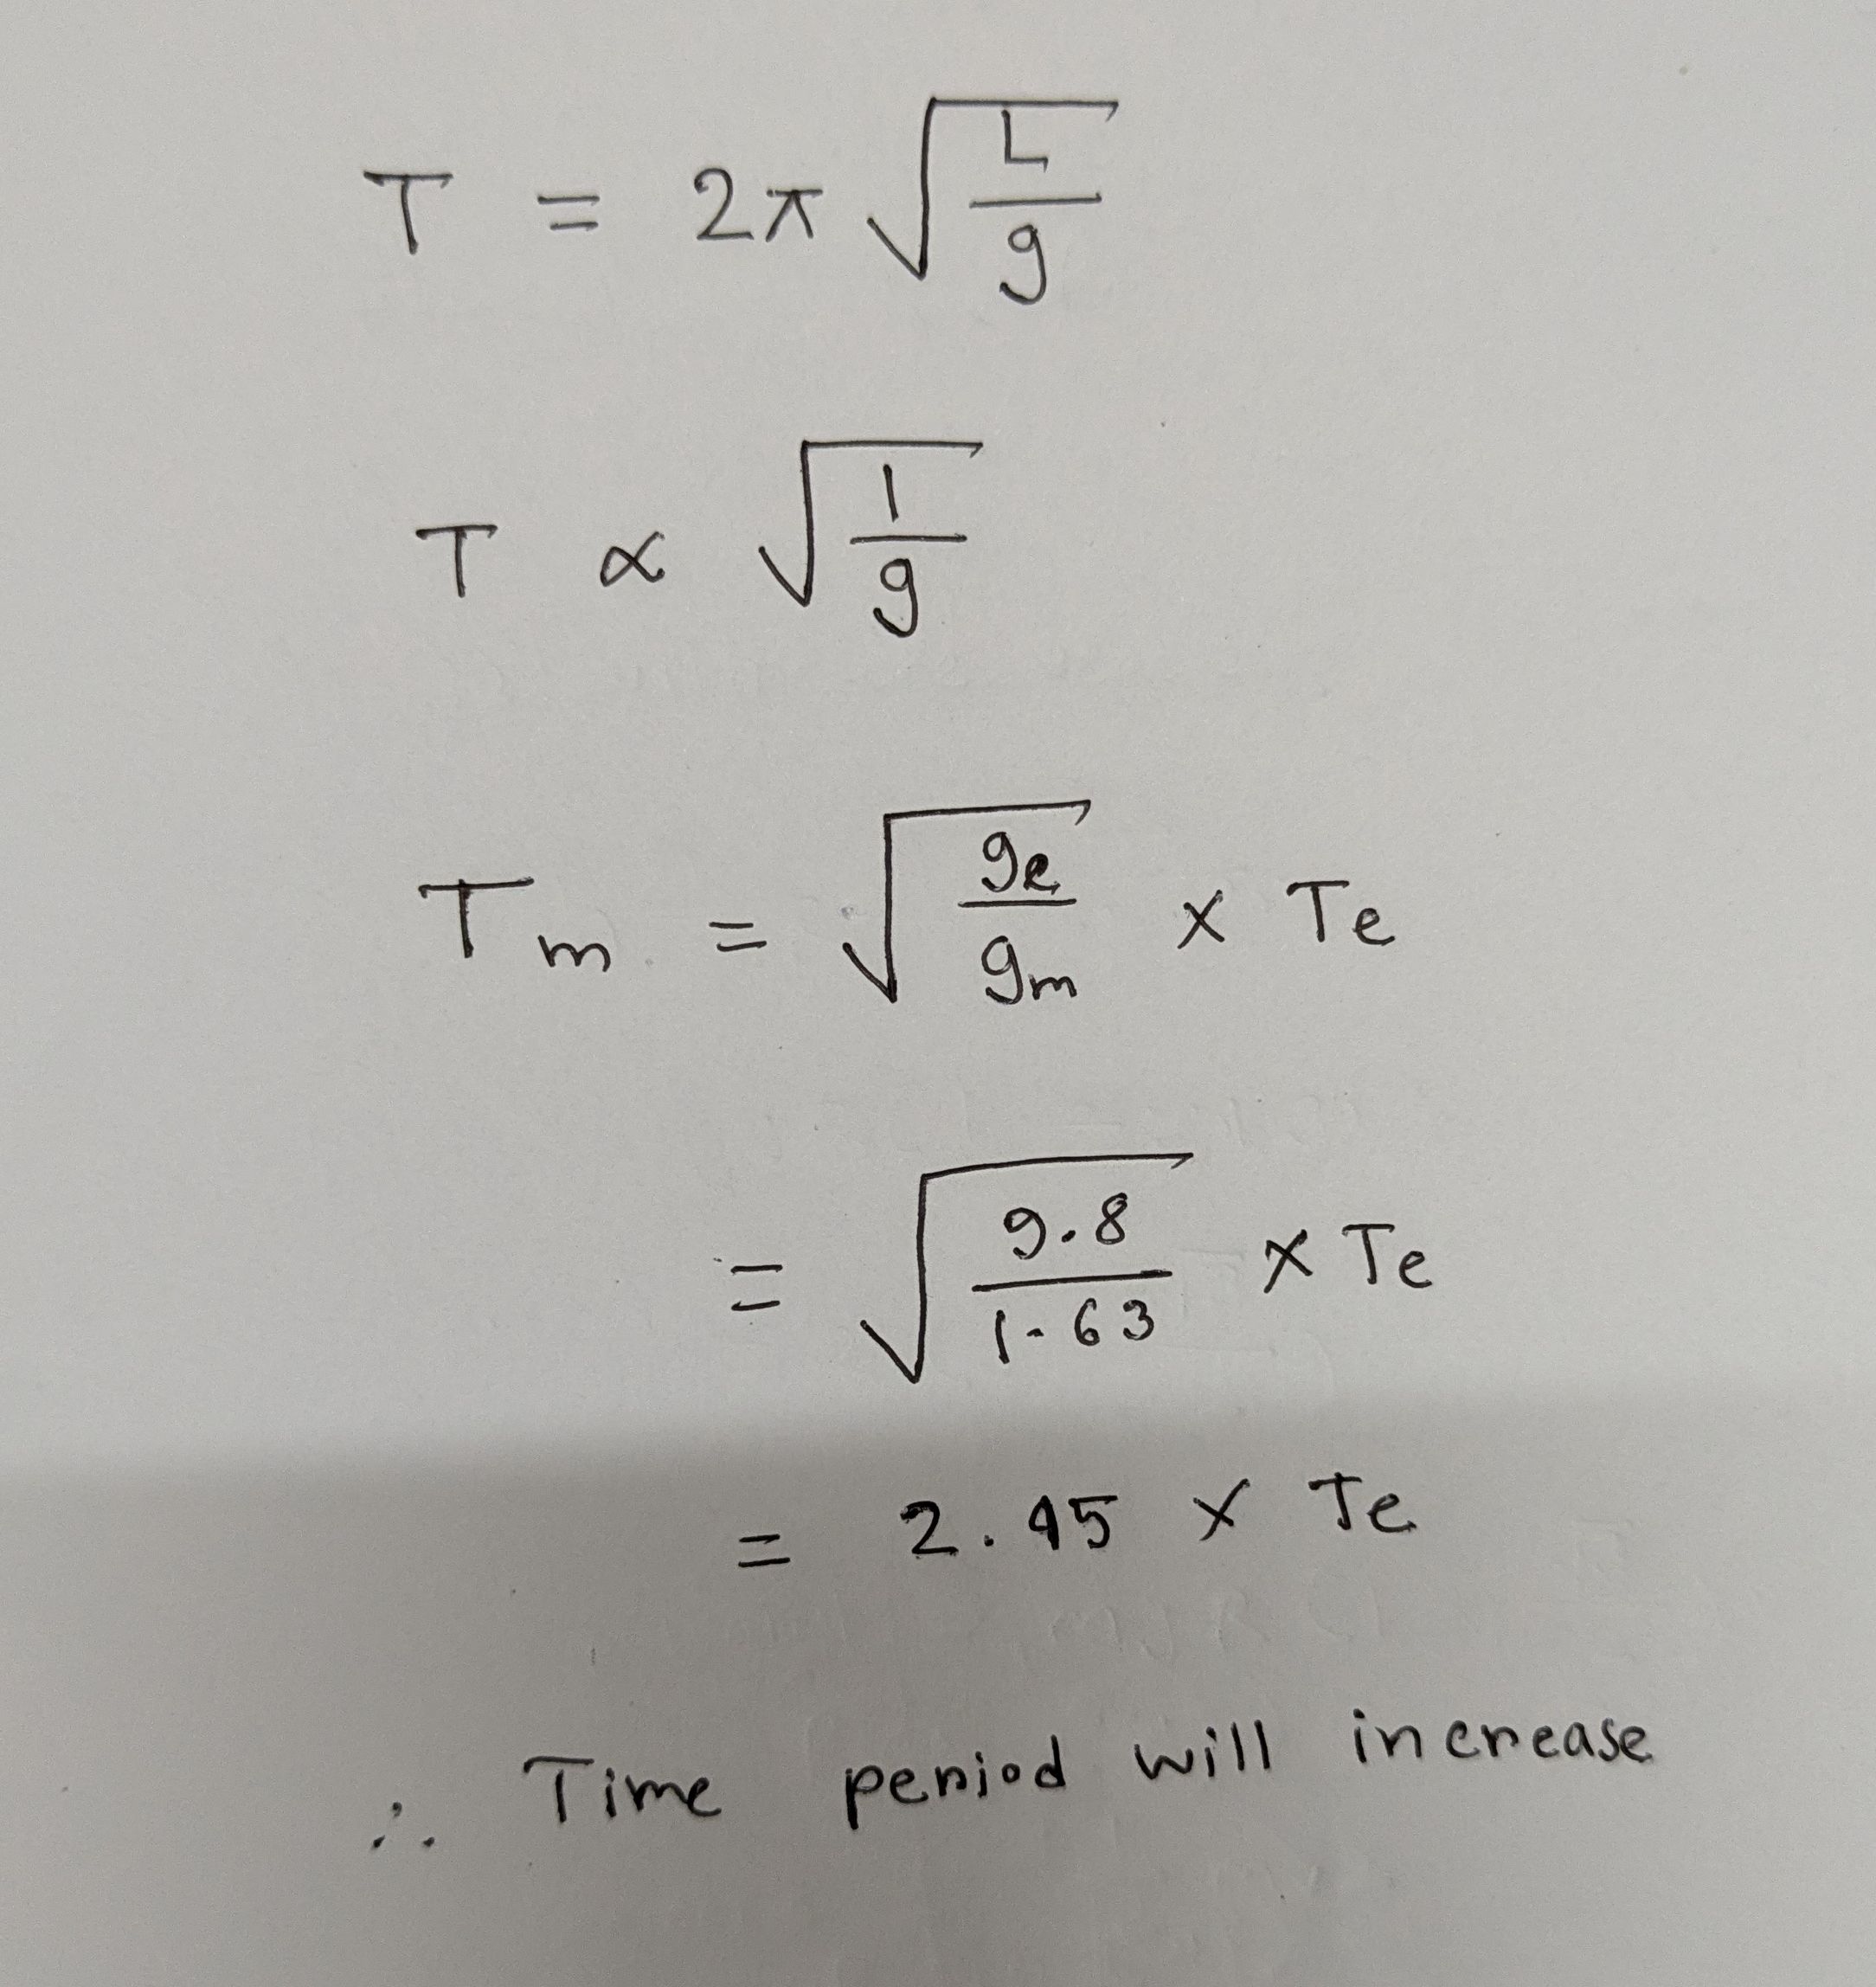 T = 2π √(L/g)
T ∝ √(1/g)
Tm = √(ge/gm) × Te
= √(9.8/1.63) × Te
= 2.45 × Te
∴ Time period will increase